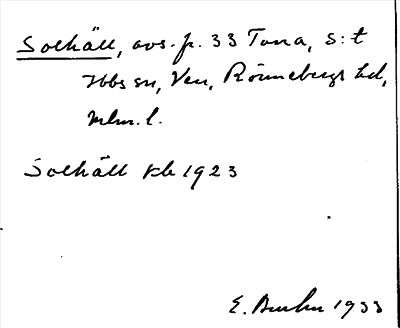 Solhäll, avs. fr. 33 Tuna, S:t
Ibbs sn, Ven, Rönnebergs hd,
Mlm. l.
Solhäll kb 1923
E. 1933